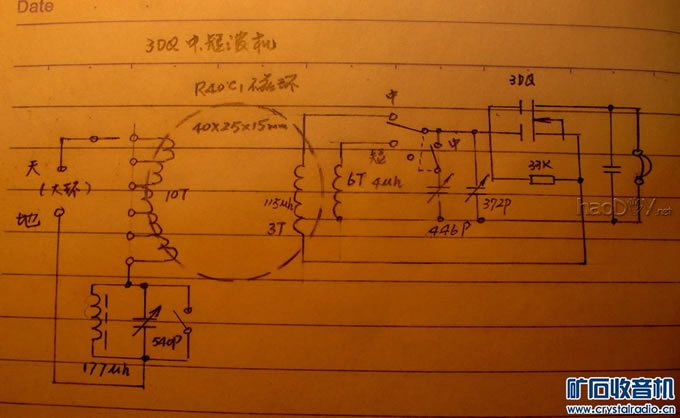 Date
3DQ 中短波机
R40C1磁环
40×25×15mm
3DQ
中
天
(大环)
地
10T
115μh
3T
短
6T
4μh
中
33K
372P
446P
540P
177μh
haoDIY.net
矿石收音机
www.crystalradio.cn